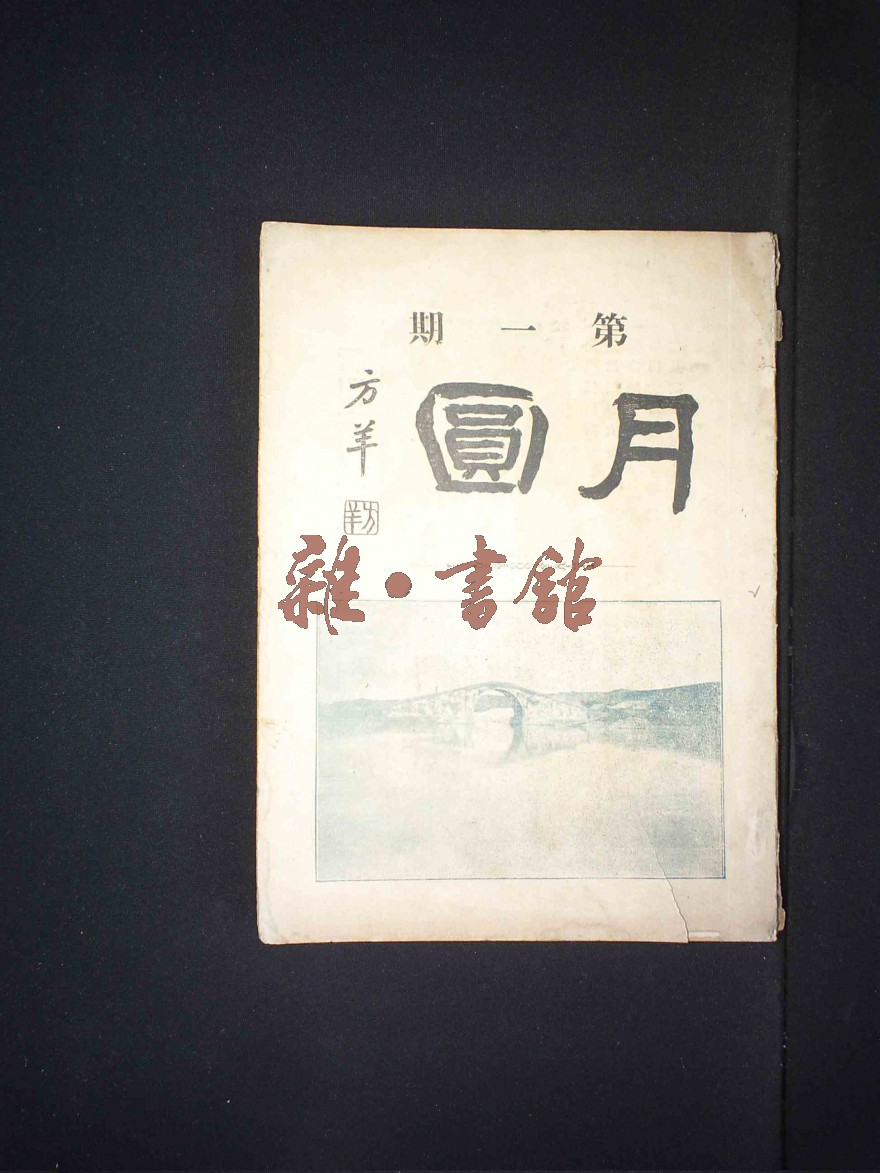 第一期
月圓
方羊
方羊
雜·書館